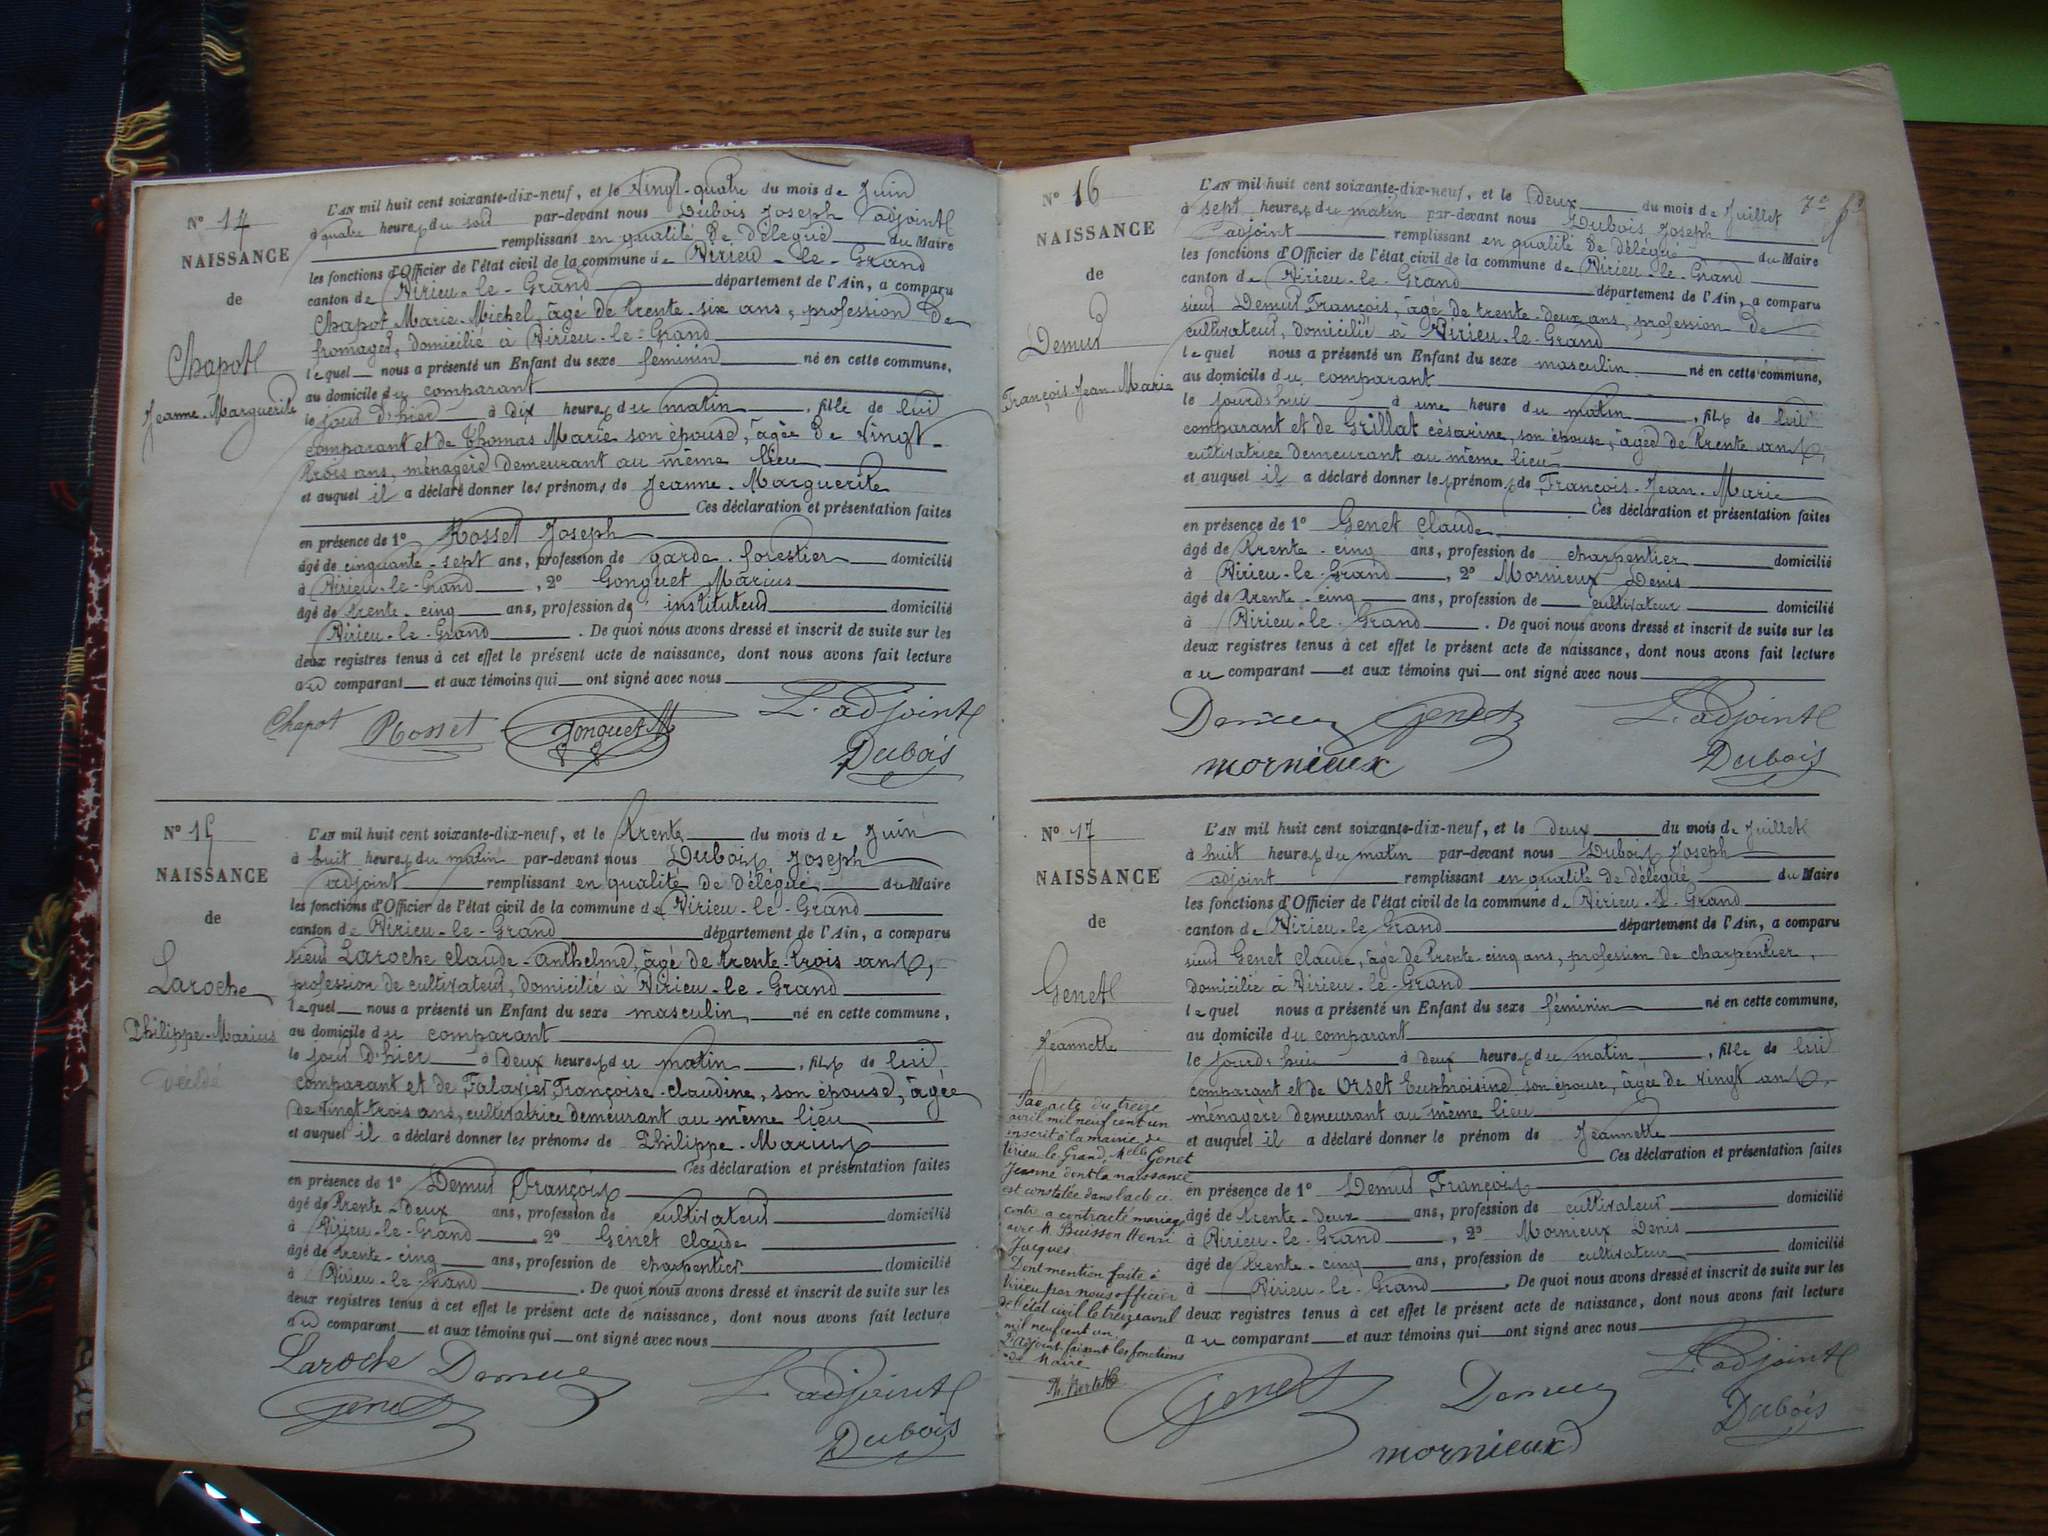 N° 14
NAISSANCE
de
Chapot
Jeanne-Marguerite
L'AN mil huit cent soixante-dix-neuf, et le vingt-quatre du mois de Juin
à quatre heures du soir par-devant nous Dubois Joseph adjoint
remplissant en qualité de délégué du Maire
les fonctions d'Officier de l'état civil de la commune de Virieu-le-Grand
canton de Virieu-le-Grand département de l'Ain, a comparu
Chapot Marie-Michel, âgé de trente-six ans, profession de
fromager, domicilié à Virieu-le-Grand
lequel nous a présenté un Enfant du sexe féminin né en cette commune,
au domicile du comparant
le jour d'hier à dix heures du matin, fille de lui
comparant et de Thomas Marie son épouse, âgée de vingt-
trois ans, ménagère demeurant au même lieu
et auquel il a déclaré donner les prénoms de Jeanne-Marguerite
Ces déclaration et présentation faites
en présence de 1° Rosset Joseph
âgé de cinquante-sept ans, profession de garde-forestier domicilié
à Virieu-le-Grand, 2° Gonguet Marius
âgé de trente-cinq ans, profession de instituteur domicilié
Virieu-le-Grand. De quoi nous avons dressé et inscrit de suite sur les
deux registres tenus à cet effet le présent acte de naissance, dont nous avons fait lecture
au comparant et aux témoins qui ont signé avec nous
Chapot Rosset Gonguet M L'adjoint
Dubois
N° 15
NAISSANCE
de
Laroche
Philippe-Marius
décédé
L'AN mil huit cent soixante-dix-neuf, et le trente du mois de Juin
à huit heures du matin par-devant nous Dubois Joseph
adjoint remplissant en qualité de délégué du Maire
les fonctions d'Officier de l'état civil de la commune de Virieu-le-Grand
canton de Virieu-le-Grand département de l'Ain, a comparu
sieur Laroche Claude-Anthelme, âgé de trente-trois ans,
profession de cultivateur, domicilié à Virieu-le-Grand
lequel nous a présenté un Enfant du sexe masculin, né en cette commune,
au domicile du comparant
le jour d'hier à deux heures du matin, fils de lui
comparant et de Falavier Françoise-Claudine, son épouse, âgée
de vingt-trois ans, cultivatrice demeurant au même lieu
et auquel il a déclaré donner les prénoms de Philippe-Marius
Ces déclaration et présentation faites
en présence de 1° Demur François
âgé de trente-deux ans, profession de cultivateur domicilié
à Virieu-le-Grand, 2° Genet Claude
âgé de trente-cinq ans, profession de charpentier domicilié
à Virieu-le-Grand. De quoi nous avons dressé et inscrit de suite sur les
deux registres tenus à cet effet le présent acte de naissance, dont nous avons fait lecture
au comparant et aux témoins qui ont signé avec nous
Laroche Demur
Genet L'adjoint
Dubois
N° 16
NAISSANCE
de
Demur
François-Jean-Marie
L'AN mil huit cent soixante-dix-neuf, et le deux du mois de Juillet
à sept heures du matin par-devant nous Dubois Joseph
adjoint remplissant en qualité de délégué du Maire
les fonctions d'Officier de l'état civil de la commune de Virieu-le-Grand
canton de Virieu-le-Grand département de l'Ain, a comparu
sieur Demur François, âgé de trente-deux ans, profession de
cultivateur, domicilié à Virieu-le-Grand
lequel nous a présenté un Enfant du sexe masculin né en cette commune,
au domicile du comparant
le jourd'hui à une heure du matin, fils de lui
comparant et de Grillat Césarine, son épouse, âgée de trente ans,
cultivatrice demeurant au même lieu
et auquel il a déclaré donner les prénoms de François-Jean-Marie
Ces déclaration et présentation faites
en présence de 1° Genet Claude
âgé de trente-cinq ans, profession de charpentier domicilié
à Virieu-le-Grand, 2° Mornieux Denis
âgé de trente-cinq ans, profession de cultivateur domicilié
à Virieu-le-Grand. De quoi nous avons dressé et inscrit de suite sur les
deux registres tenus à cet effet le présent acte de naissance, dont nous avons fait lecture
au comparant et aux témoins qui ont signé avec nous
Demur Genet L'adjoint
mornieux Dubois
N° 17
NAISSANCE
de
Genet
Jeannette
Par acte du treize
avril mil neuf cent un
inscrit à la mairie de
Virieu le Grand, Melle Genet
Jeanne dont la naissance
est constatée dans l'acte ci-
contre a contracté mariage
avec M. Buisson Henri
Jacques
Dont mention faite à
Virieu par nous officier
de l'état civil le treize avril
mil neuf cent un
L'Adjoint faisant les fonctions
de Maire
L'AN mil huit cent soixante-dix-neuf, et le deux du mois de Juillet
à huit heures du matin par-devant nous Dubois Joseph
adjoint remplissant en qualité de délégué du Maire
les fonctions d'Officier de l'état civil de la commune de Virieu-le-Grand
canton de Virieu-le-Grand département de l'Ain, a comparu
sieur Genet Claude, âgé de trente-cinq ans, profession de charpentier,
domicilié à Virieu-le-Grand
lequel nous a présenté un Enfant du sexe féminin né en cette commune,
au domicile du comparant
le jourd'hui à deux heures du matin, fille de lui
comparant et de Orset Euphroisine son épouse, âgée de vingt ans,
ménagère demeurant au même lieu
et auquel il a déclaré donner le prénom de Jeannette
Ces déclaration et présentation faites
en présence de 1° Demur François
âgé de trente-deux ans, profession de cultivateur domicilié
à Virieu-le-Grand, 2° Mornieux Denis
âgé de trente-cinq ans, profession de cultivateur domicilié
à Virieu-le-Grand. De quoi nous avons dressé et inscrit de suite sur les
deux registres tenus à cet effet le présent acte de naissance, dont nous avons fait lecture
au comparant et aux témoins qui ont signé avec nous
Genet Demur L'adjoint
mornieux Dubois